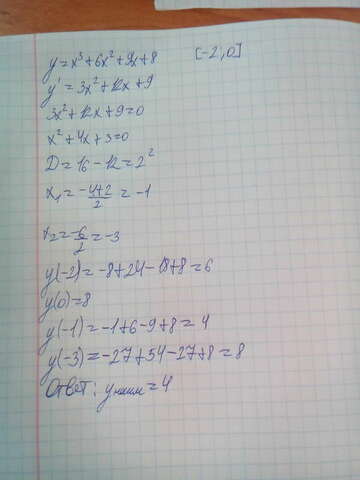 y=x³+6x²+9x+8 [-2,0]
y'=3x²+12x+9
3x²+12x+9=0
x²+4x+3=0
D=16-12=2²
x₁=-4+2/2=-1
x₂=-6/2=-3
y(-2)=-8+24-18+8=6
y(0)=8
y(-1)=-1+6-9+8=4
y(-3)=-27+54-27+8=8
Ответ: yнаим=4